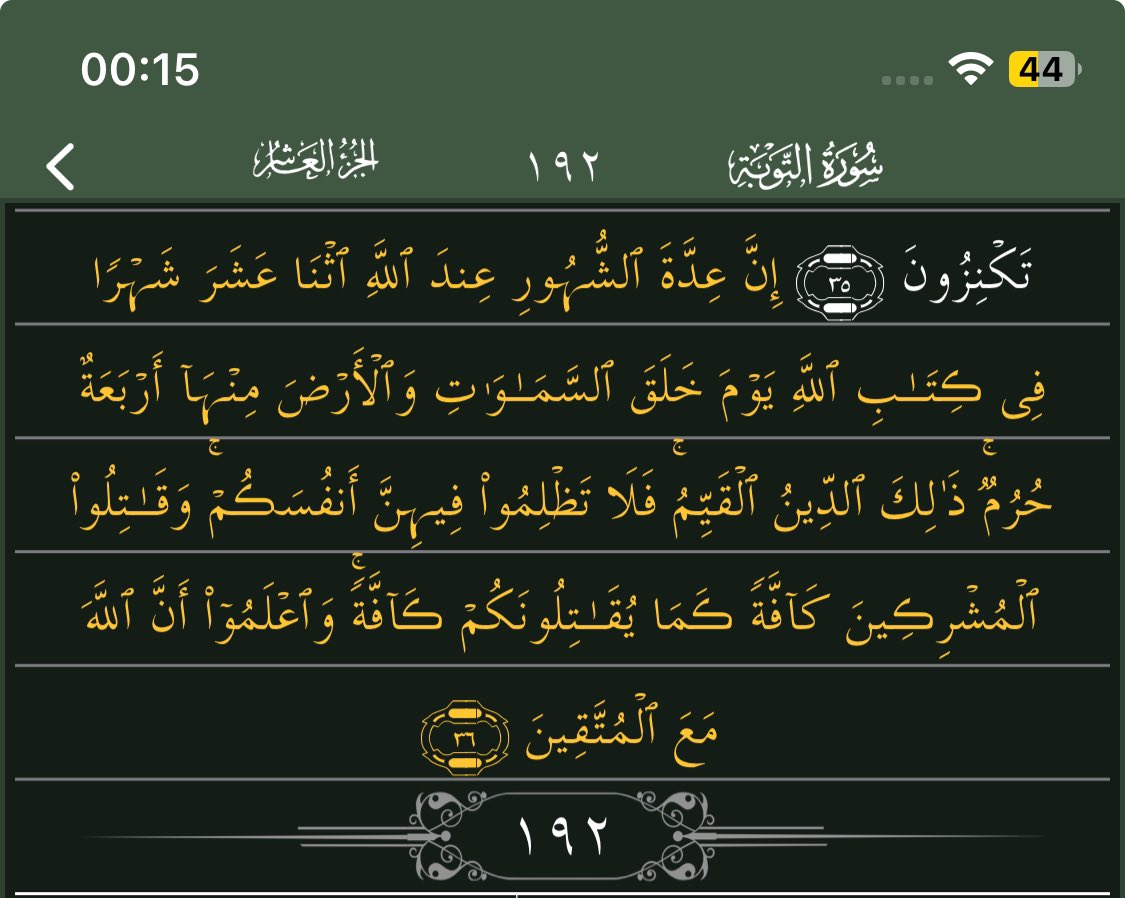 00:15 44
سُورَةُ التَّوْبَةِ ١٩٢ الجُزْءُ العَاشِرُ
تَكْنِزُونَ ٣٥ إِنَّ عِدَّةَ ٱلشُّهُورِ عِندَ ٱللَّهِ ٱثْنَا عَشَرَ شَهْرًا
فِى كِتَـٰبِ ٱللَّهِ يَوْمَ خَلَقَ ٱلسَّمَـٰوَٰتِ وَٱلْأَرْضَ مِنْهَآ أَرْبَعَةٌ
حُرُمٌ ۚ ذَٰلِكَ ٱلدِّينُ ٱلْقَيِّمُ ۚ فَلَا تَظْلِمُوا۟ فِيهِنَّ أَنفُسَكُمْ ۚ وَقَـٰتِلُوا۟
ٱلْمُشْرِكِينَ كَآفَّةً كَمَا يُقَـٰتِلُونَكُمْ كَآفَّةً ۚ وَٱعْلَمُوٓا۟ أَنَّ ٱللَّهَ
مَعَ ٱلْمُتَّقِينَ ٣٦
١٩٢